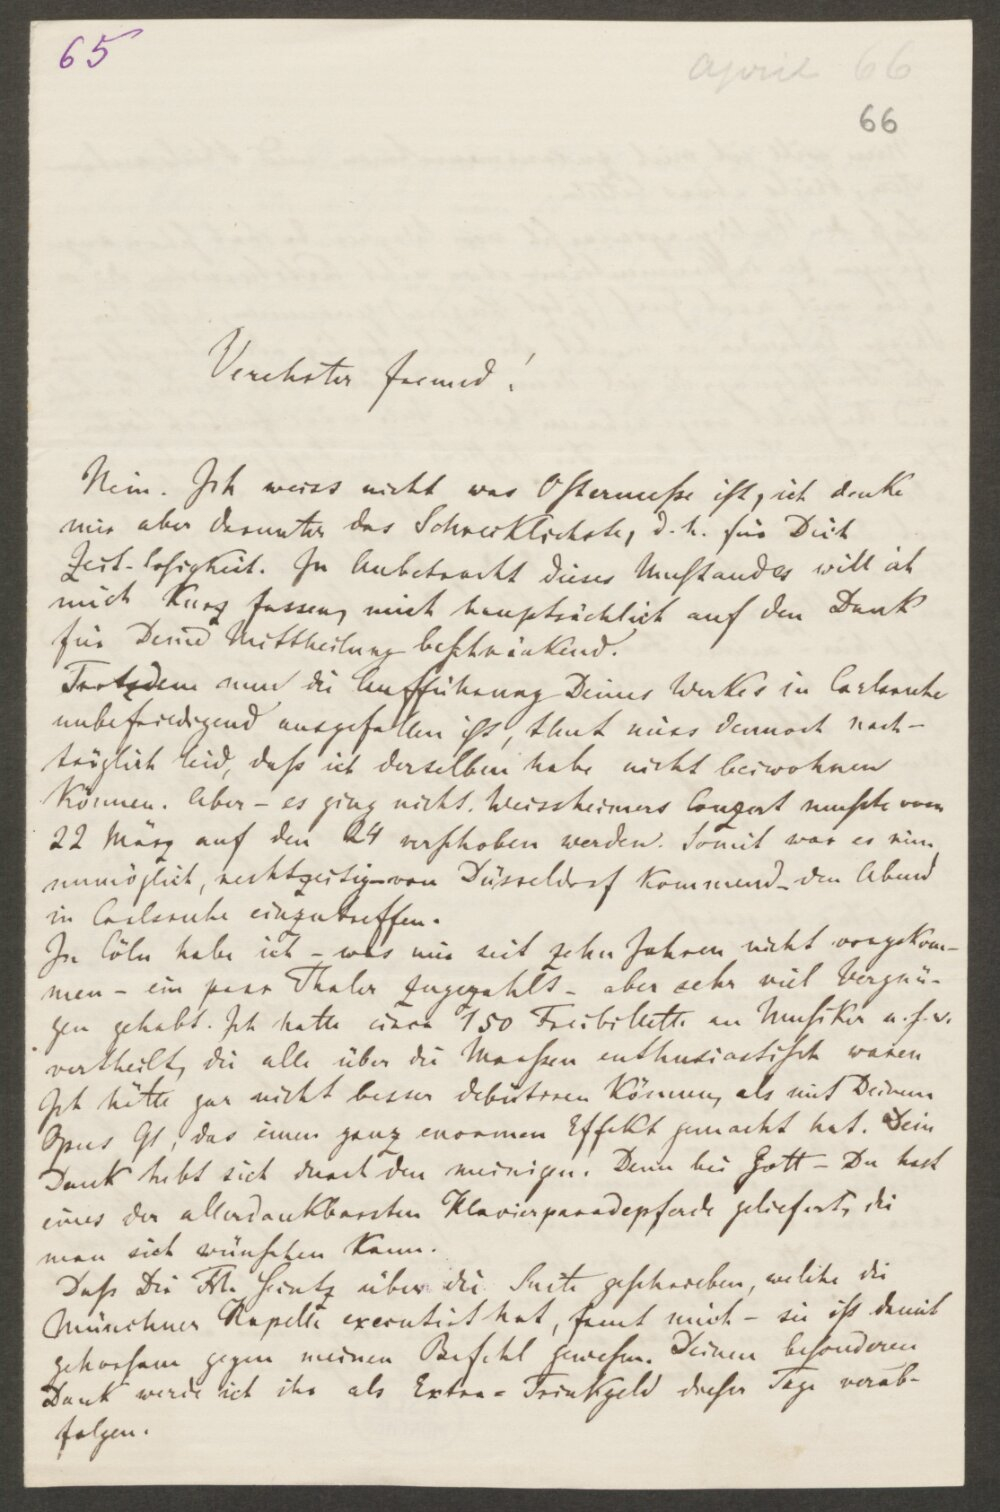 65
April 66
66
Verehrter Freund!
Nein. Ich weiss nicht was Ostermesse ist, ich denke
mir aber darunter das Schrecklichste, d. h. für Dich
Zeit-losigkeit. In Anbetracht dieses Umstandes will ich
mich kurz fassen, mich hauptsächlich auf den Dank
für Deine Mittheilung beschränkend.
Trotzdem nun die Aufführung Deines Werkes in Carlsruhe
unbefriedigend ausgefallen ist, thut mirs dennoch nach-
träglich leid, dass ich derselben habe nicht beiwohnen
können. Aber – es ging nicht. Weissheimers Conzert musste vom
22 März auf den 24 verschoben werden. Somit war es rein
unmöglich, rechtzeitig – von Düsseldorf kommend – den Abend
in Carlsruhe einzutreffen.
In Cöln habe ich – was mir seit zehn Jahren nicht vorgekom-
men – ein paar Thaler zugezahlt – aber sehr viel Vergnü-
gen gehabt. Ich hatte circa 150 Freibillette an Musiker u. s. w.
vertheilt, die alle über die Maassen enthusiastisch waren
Ich hätte gar nicht besser debütiren können, als mit Deinem
Opus 91, das einen ganz enormen Effekt gemacht hat. Dein
Dank hebt sich durch den meinigen. Denn bei Gott – Du hast
eines der allerdankbarsten Klavierparadepferde geliefert, die
man sich wünschen kann.
Dass Dir Frl. Heintz über die Suite geschrieben, welche die
Münchner Kapelle executirt hat, freut mich – sie ist damit
gehorsam gegen meinen Befehl gewesen. Deinen besonderen
Dank werde ich ihr als Extra-Trinkgeld dieser Tage verab-
folgen.